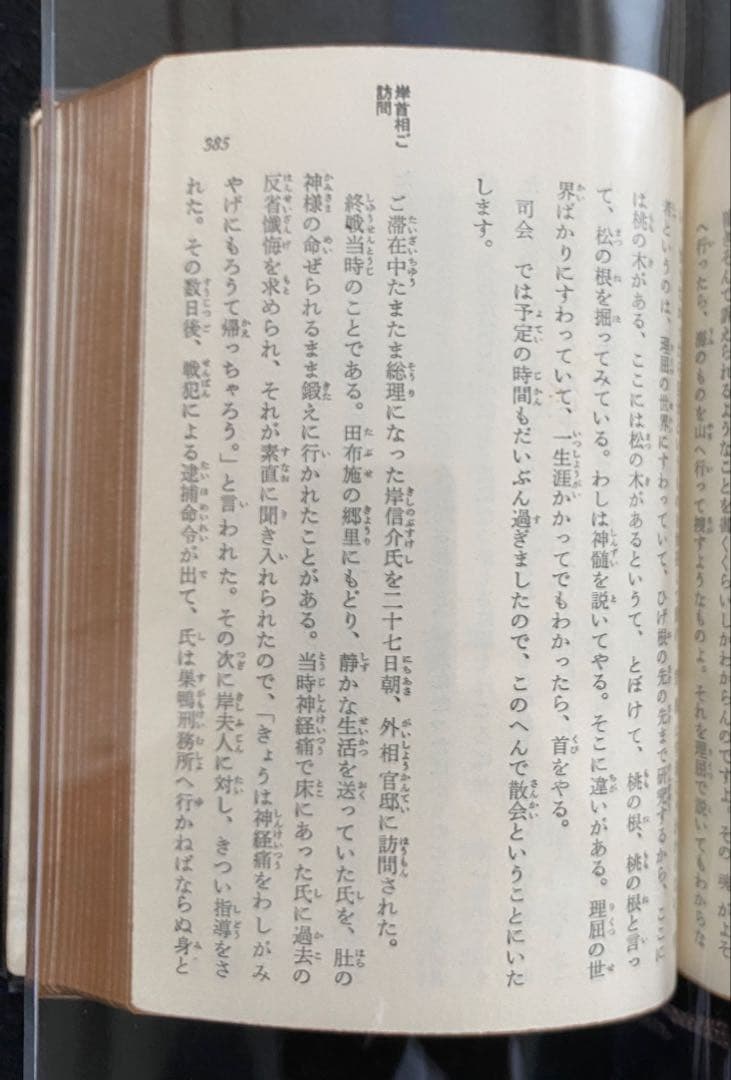 へ行ったら、海のものを山へ行って捜すようなものよ。それを理屈で説いてもわからな
というのは、理屈の世界にすわっていて、ひげ根の先の先まで研究するから、ここに
は桃の木がある、ここには松の木があるというて、とぼけて、桃の根、桃の根と言っ
て、松の根を掘ってみている。わしは神髄を説いてやる。そこに違いがある。理屈の世
界ばかりにすわっていて、一生涯かかってでもわかったら、首をやる。
司会　では予定の時間もだいぶん過ぎましたので、このへんで散会ということにいた
します。
岸首相ご
訪問
ご滞在中たまたま総理になった岸信介氏を二十七日朝、外相官邸に訪問された。
終戦当時のことである。田布施の郷里にもどり、静かな生活を送っていた氏を、肚の
神様の命ぜられるまま鍛えに行かれたことがある。当時神経痛で床にあった氏に過去の
反省懺悔を求められ、それが素直に聞き入れられたので、「きょうは神経痛をわしがみ
やげにもろうて帰っちゃろう。」と言われた。その次に岸夫人に対し、きつい指導をさ
れた。その数日後、戦犯による逮捕命令が出て、氏は巣鴨刑務所へ行かねばならぬ身と
385